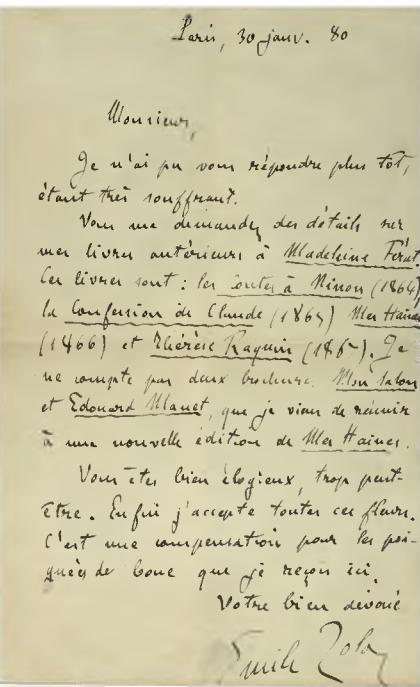 Paris, 30 janv. 80
Monsieur,
Je n'ai pu vous répondre plus tôt,
étant très souffrant.
Vous me demandez des détails sur
mes livres antérieurs à Madeleine Férat.
Ces livres sont : les Contes à Ninon (1864)
la Confession de Claude (1865) Mes Haines
(1866) et Thérèse Raquin (1867). Je
ne compte pas deux brochures Mon Salon
et Edouard Manet, que je viens de réunir
à une nouvelle édition de Mes Haines.
Vous êtes bien élogieux, trop peut-
être. Enfin j'accepte toutes ces fleurs.
C'est une compensation pour les poi-
gnées de boue que je reçois ici.
Votre bien dévoué
Emile Zola